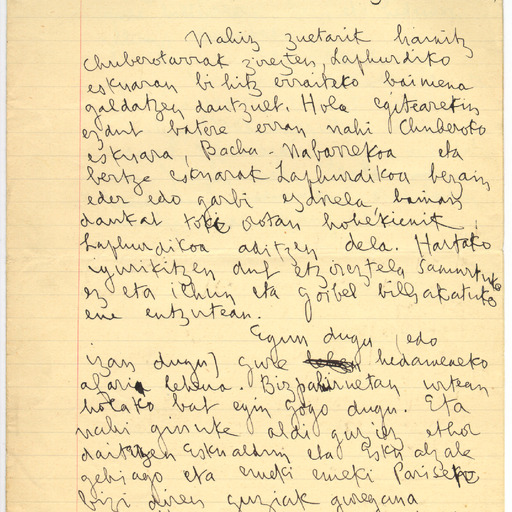 Nahiz zuetarik hainitz
Chuberotarrak zirezten, Laphurdiko
eskuaran bi hitz erraiteko baimena
galdatzen dautzuet. Hola egitearekin
ez dut batere erran nahi Chuberoko
eskuara, Bacha-Nabarrekoa eta
bertze eskuarak Laphurdikoa bezain
eder edo garbi ez direla, bainan
daukat toki orotan hobekienik
Laphurdikoa aditzen dela. Hartako
igurikitzen dut etzireztela samurtuko
ez eta ilhun eta goibel bilhakatuko
ene entzutean.
Egun dugu (edo
izan dugu) gure hedameneko
afari lehena. Bizpahiruetan urtean
holako bat egin gogo dugu. Eta
nahi ginuke aldi guziez ethor
daitezen Eskualdun eta Eskualzale
gehiago eta emeki emeki Parisen
bizi diren guziak guregana